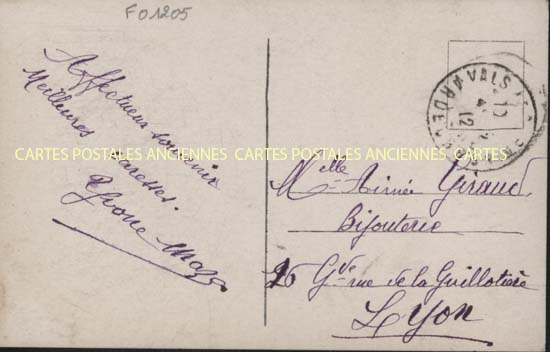 F01205
Affectueux souvenir
Meilleures caresses.
Yvonne
CARTES POSTALES ANCIENNES CARTES POSTALES ANCIENNES
VALS
ARDECHE
Melle Aimée Giraud
Bijouterie
26 Gde rue de la Guillotière
Lyon